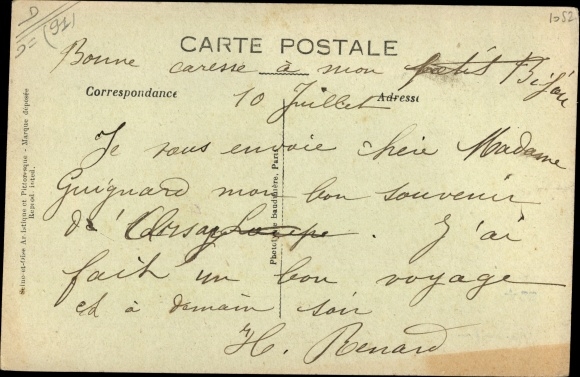 D (91)
1052
CARTE POSTALE
Bonne caresse à mon petit Bijou
Correspondance
Adresse
10 Juillet
Je vous envoie chère Madame
Guignard mon bon souvenir
de
J'ai
fait un bon voyage
et à demain soir
H. Renard
Seine-et-Oise Artistique et Pittoresque - Marque déposée
Reprod. interd.
Phototypie baudinière, Paris